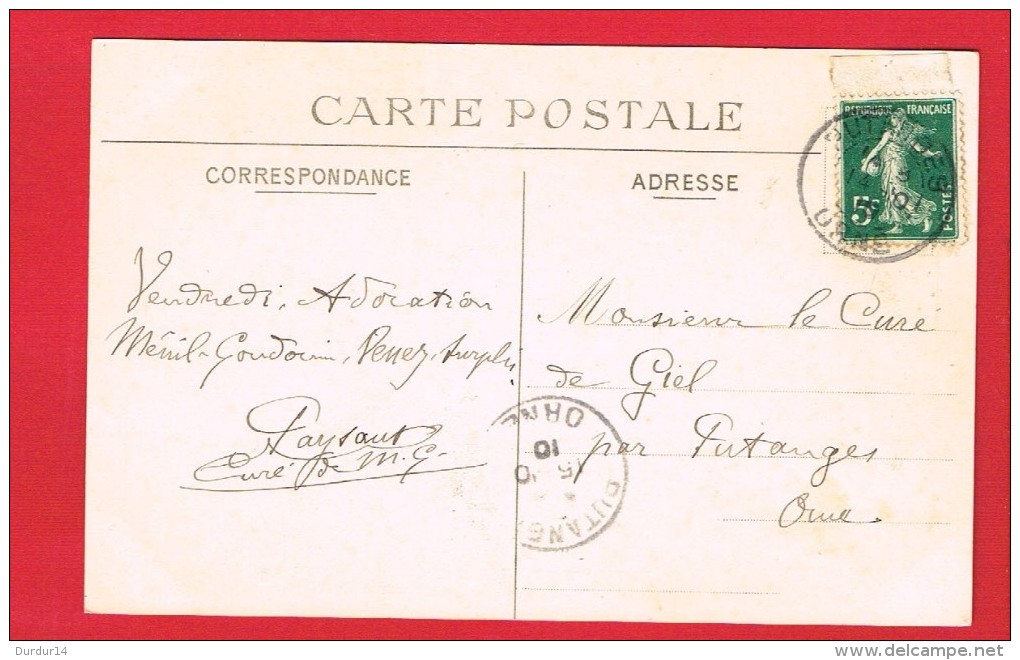 CARTE POSTALE
CORRESPONDANCE
ADRESSE
RÉPUBLIQUE FRANÇAISE
5c
POSTES
ORNE
Vendredi, Adoration
Ménil-Gondouin, Venez, Surplis.
Paysant
Curé de M. G.
Monsieur le Curé
de Giel
par Putanges
Orne.
PUTANG
ORNE
15
10
Durdur14
delcampe.net